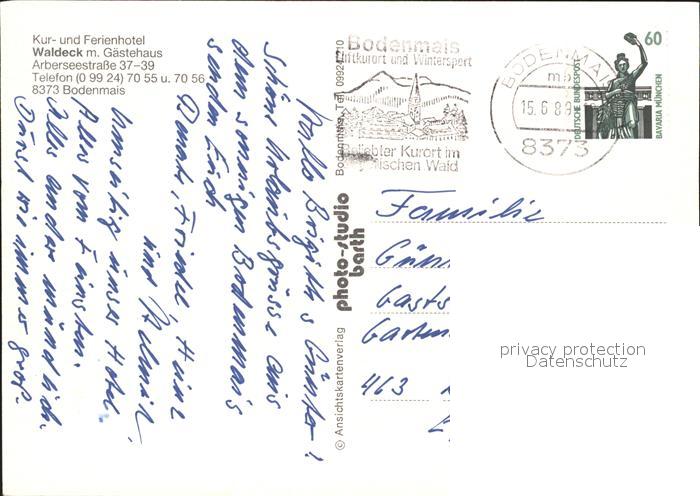 Kur- und Ferienhotel
Waldeck m. Gästehaus
Arberseestraße 37–39
Telefon (0 99 24) 70 55 u. 70 56
8373 Bodenmais
Hallo Brigitte & Günter!
Schöne Urlaubsgrüsse aus
dem sonnigen Bodenmais
senden Euch
Renate, Friedel, Heinz
und Helmut
Umseitig unser Hotel.
Alles vom Feinsten.
Alles andere mündlich.
Durst wie immer groß.
© Ansichtskartenverlag
photo-studio
barth
Bodenmais
Luftkurort und Wintersport
Beliebter Kurort im
Bayerischen Wald
Bodenmais, Tel. 09924/210
BODENMAIS
mb
15.6.89
8373
60
DEUTSCHE BUNDESPOST
BAVARIA MÜNCHEN
Familie
Gün
Gasts
Garten
463
privacy protection
Datenschutz